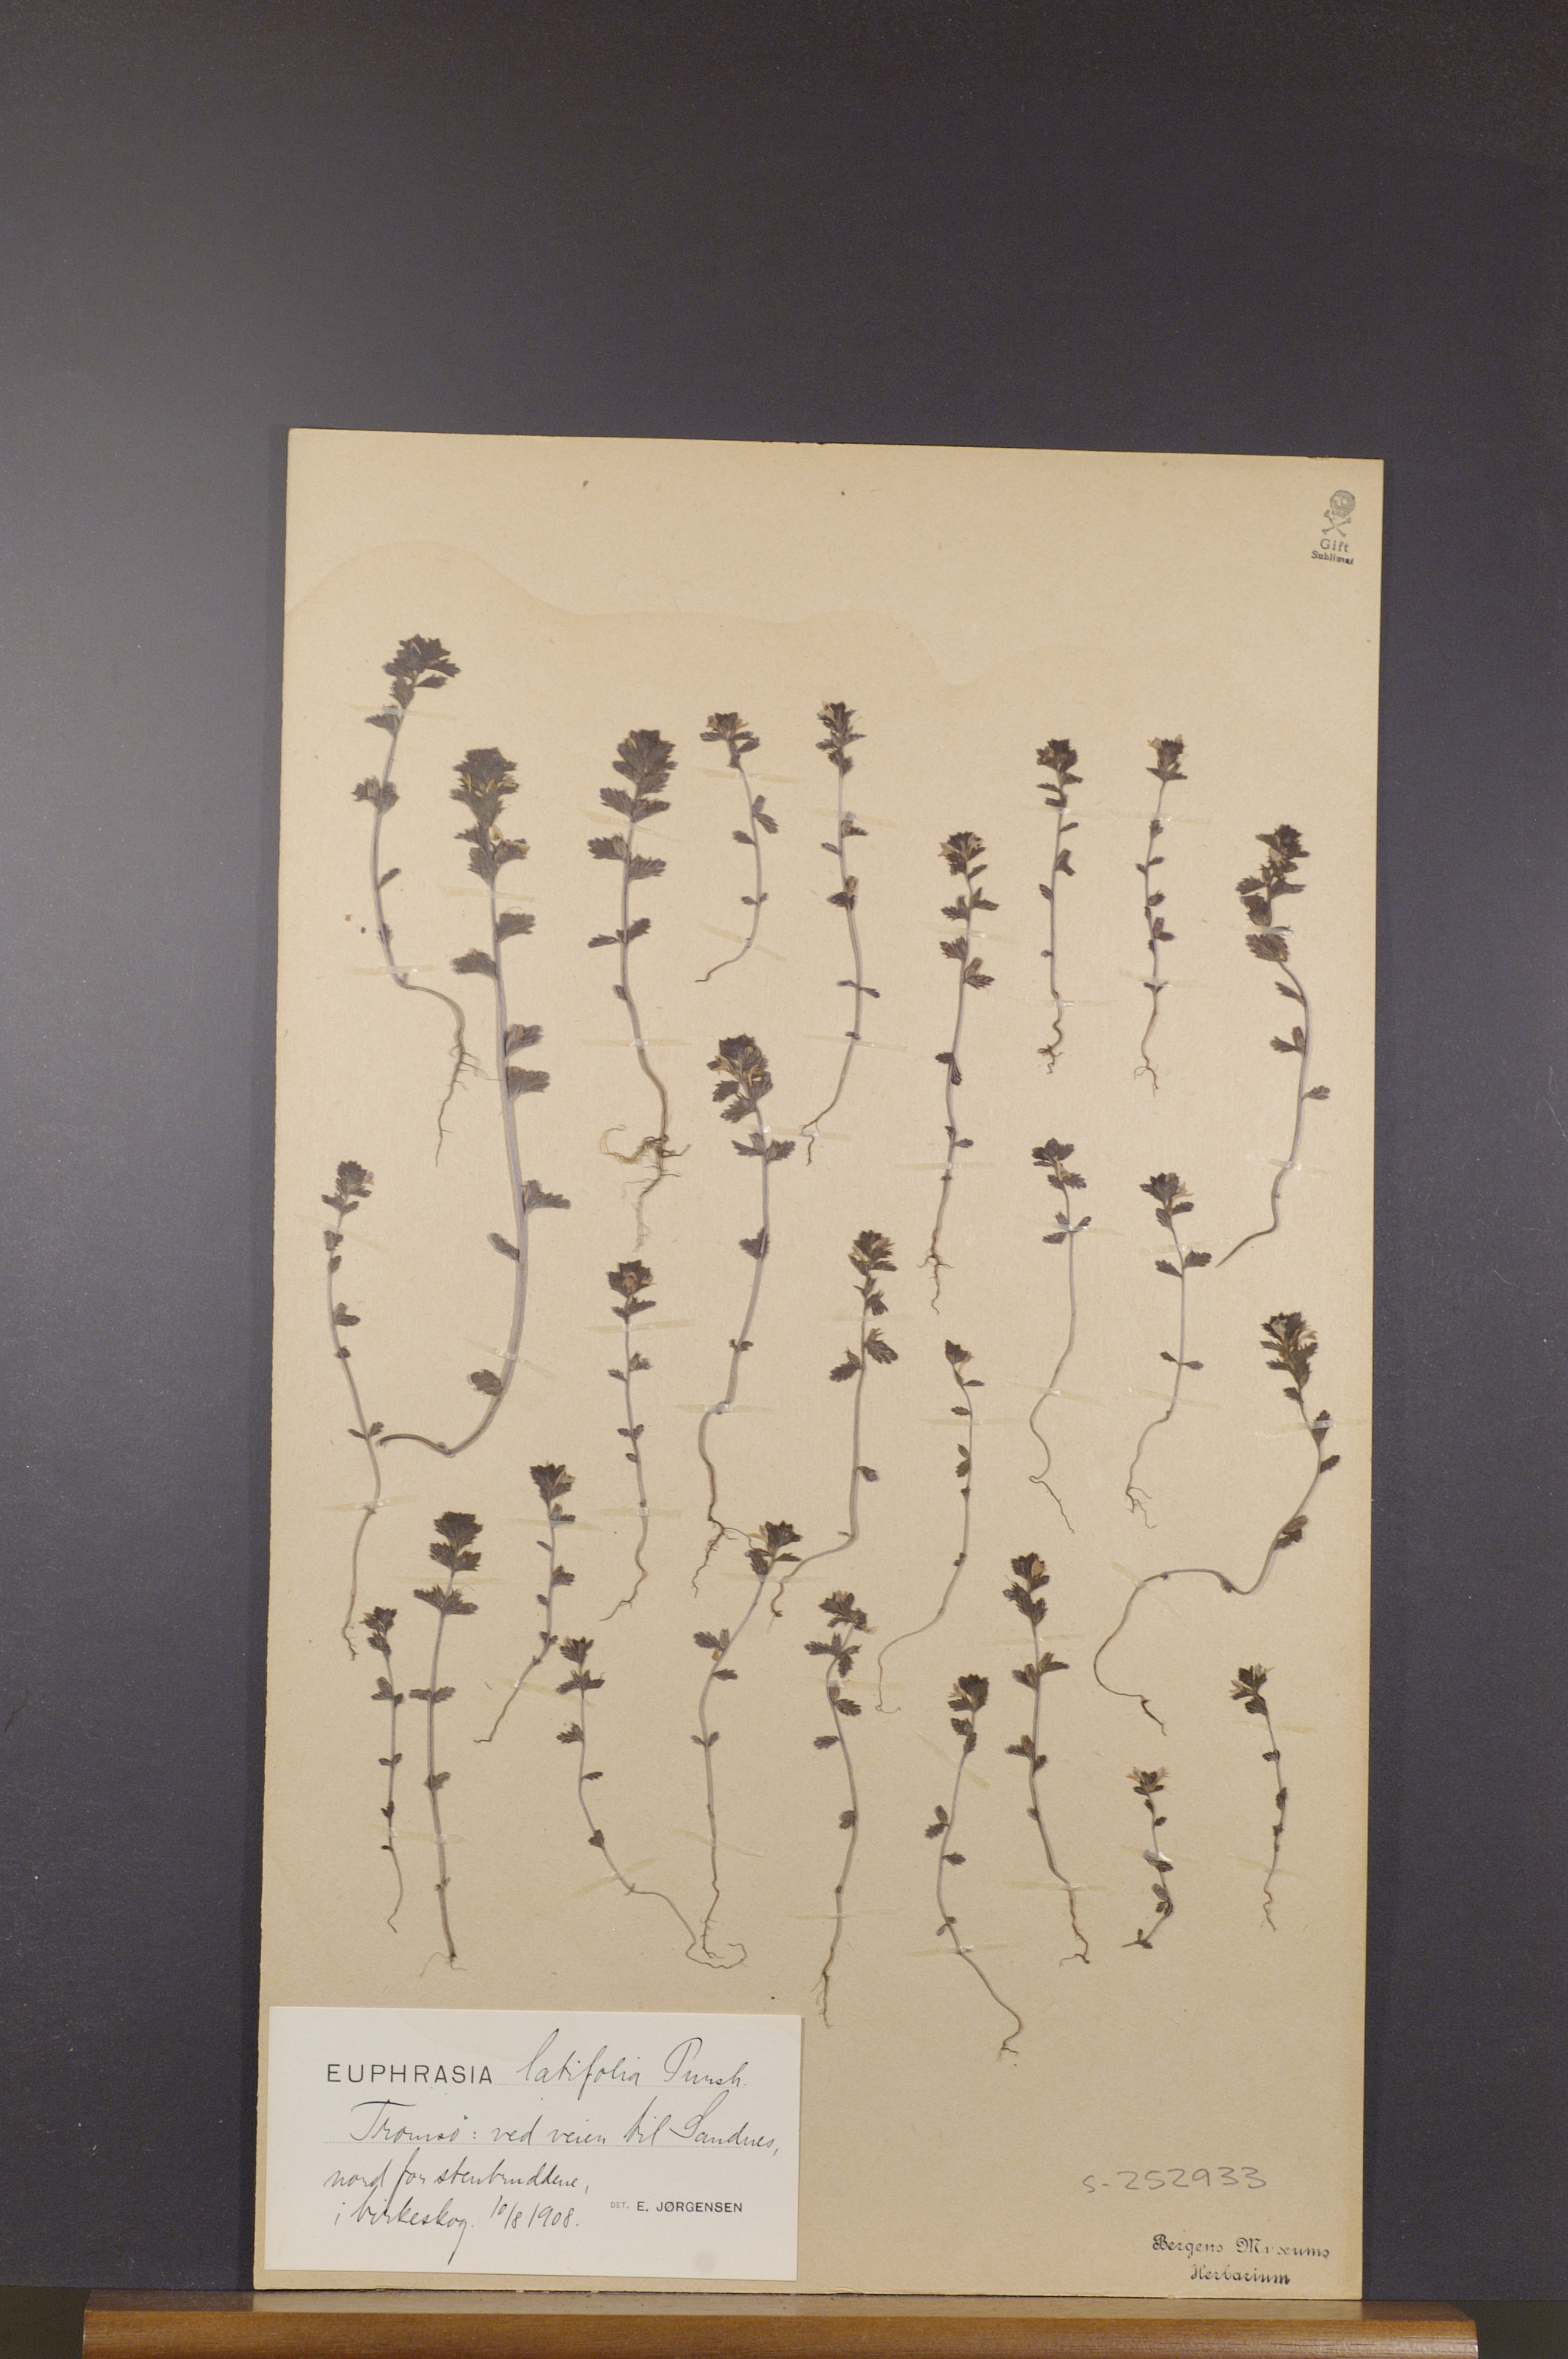 Gift
Sublimat
EUPHRASIA latifolia Pursh.
Tromsö: ved veien til Sandnes,
nord for stenbruddene,
i birkeskog. 10/8 1908.
DET. E. JØRGENSEN
S-252933
Bergens Museums
Herbarium